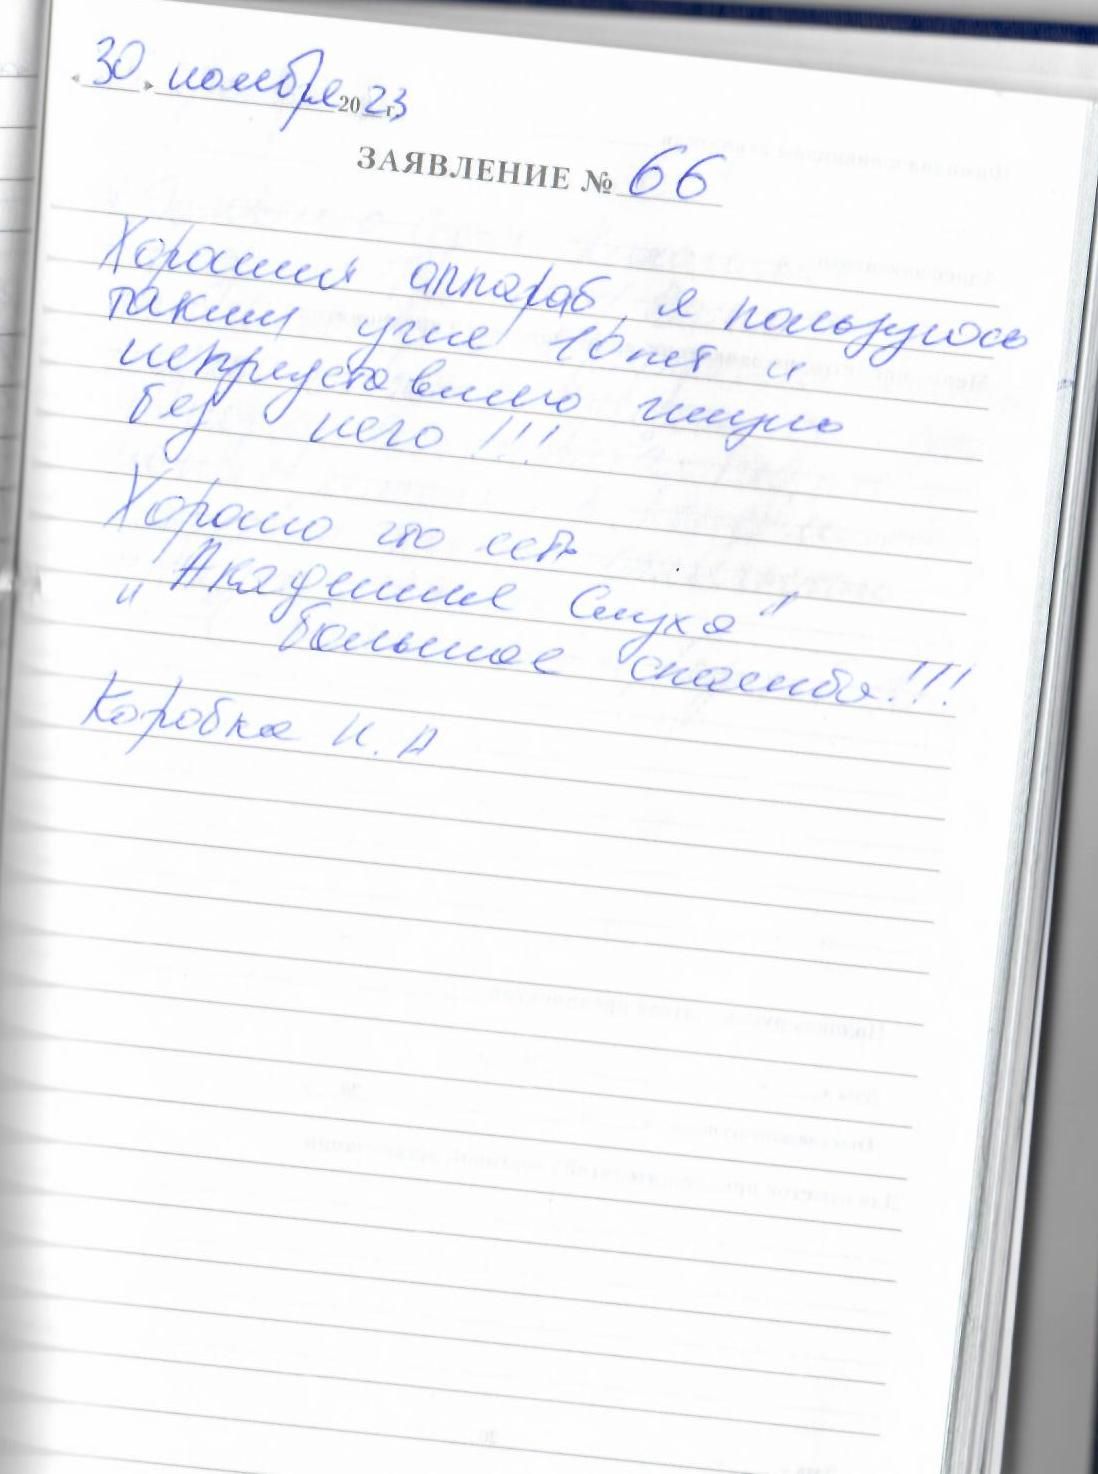 « 30 » ноября 2023 г.
ЗАЯВЛЕНИЕ № 66
Хороший аппараб, я пользуюсь
таким уже 10 лет и
непредставляю жизнь
без него!!!
Хорошо что есть
"Академия Слуха"
большое спасибо!!!
Коробка Н. А